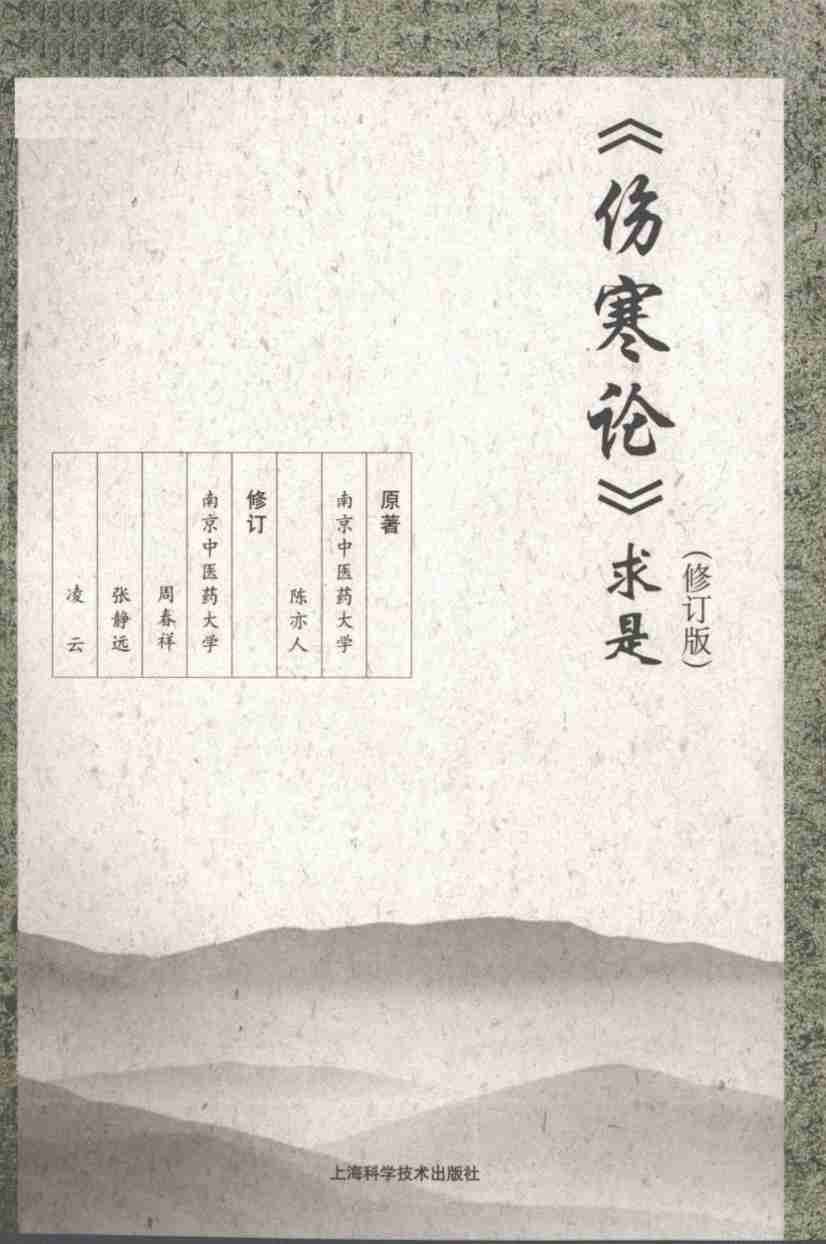 《伤寒论》求是
(修订版)
原著
南京中医药大学
陈亦人
修订
南京中医药大学
周春祥
张静远
凌云
上海科学技术出版社